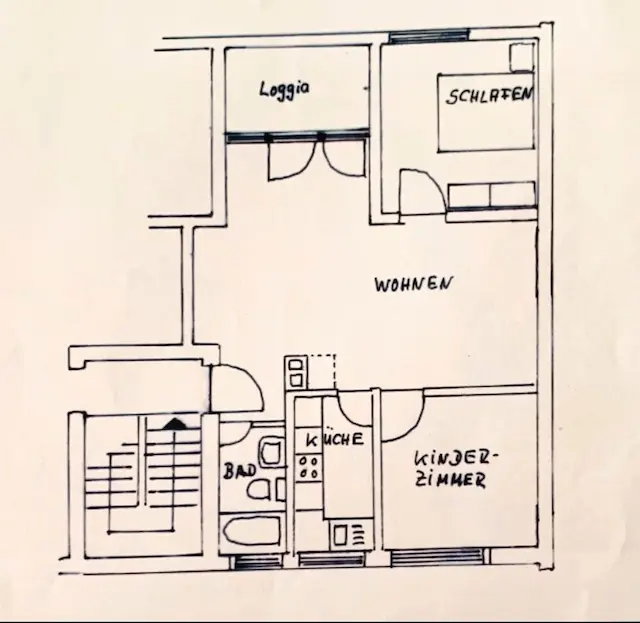 Loggia
SCHLAFEN
WOHNEN
KÜCHE
BAD
KINDER-
ZIMMER